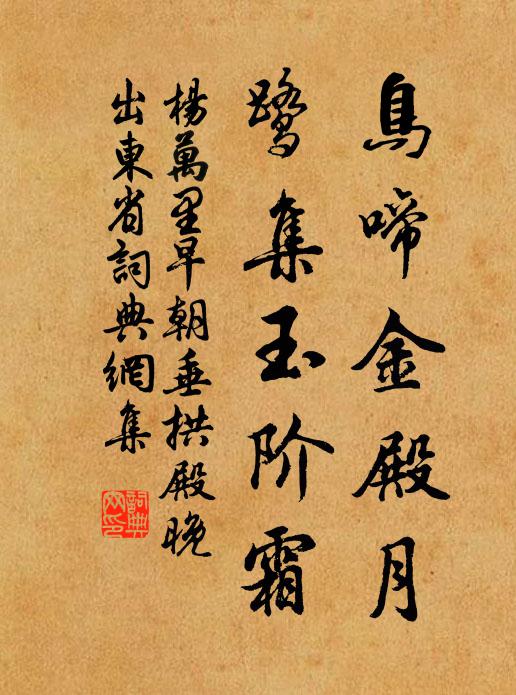 鳥啼金殿月
鷺集玉阶霜
楊萬里早朝垂拱殿晚
出東省詞典網集
詞典网印